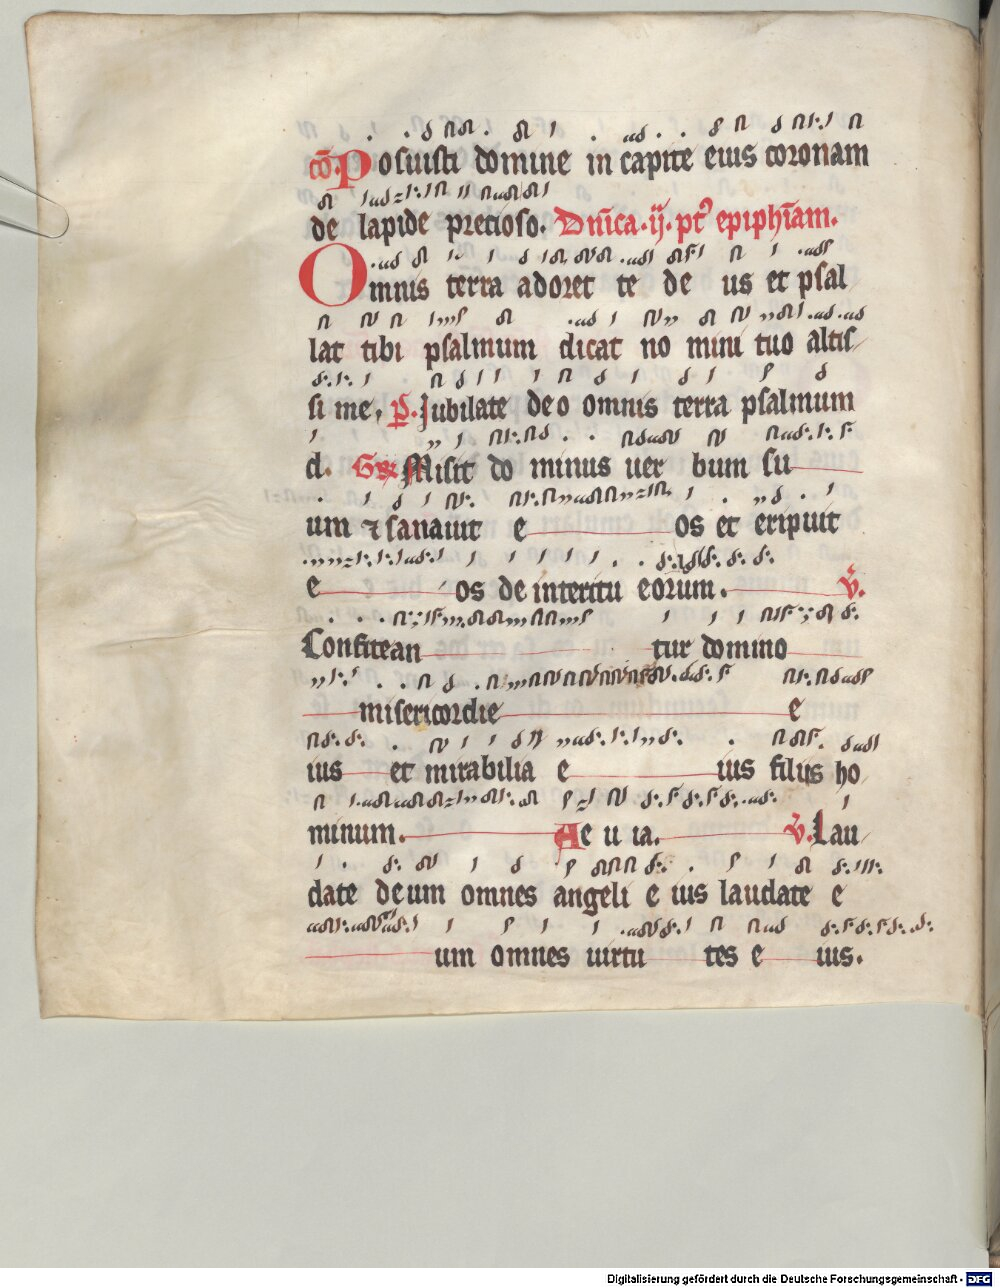 cō. Posuisti domine in capite eius coronam
de lapide precioso. Dnĩca. ij. pt᾽ epiphīam.
Omnis terra adoret te de us et psal
lat tibi psalmum dicat no mini tuo altis
si me, ps. Jubilate deo omnis terra psalmum
d. Gr̄ Misit do minus uer bum su
um ⁊ sanauit e os et eripuit
e os de interitu eorum. v̄.
Confitean tur domino
misericordie e
ius et mirabilia e ius filijs ho
minum. Ae u ia. v̄. Lau
date deum omnes angeli e ius laudate e
um omnes uirtu tes e ius.
Digitalisierung gefördert durch die Deutsche Forschungsgemeinschaft - DFG